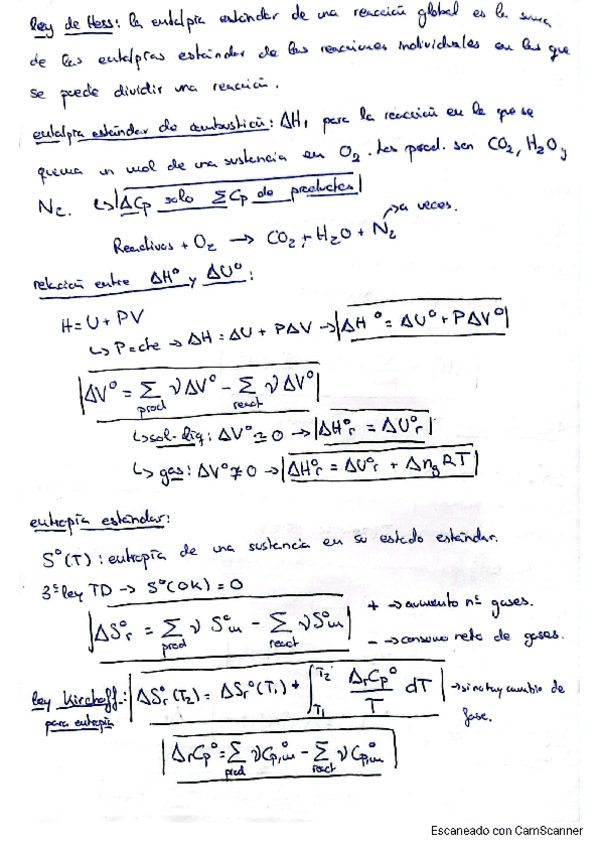 ley de Hess: la entalpía estándar de una reacción global es la suma
de las entalpías estándar de las reacciones individuales en las que
se puede dividir una reacción.
entalpía estándar de combustión: ΔH, para la reacción en la que se
quema un mol de una sustancia en O₂. Los prod. son CO₂, H₂O y
N₂. ↳ |ΔCp solo ΣCp de productos|
→ a veces.
Reactivos + O₂ → CO₂ + H₂O + N₂
relación entre ΔH° y ΔU°:
H = U + PV
↳ P=cte → ΔH = ΔU + PΔV → |ΔH° = ΔU° + PΔV°|
|ΔV° = Σ νΔV° − Σ νΔV°|
prod react
↳ sol-líq: ΔV° ≃ 0 → |ΔH°r = ΔU°r|
↳ gas: ΔV° ≠ 0 → |ΔH°r = ΔU°r + Δng RT|
entropía estándar:
S°(T): entropía de una sustancia en su estado estándar.
3ª ley TD → S°(0K) = 0
+ → aumento nº gases.
|ΔS°r = Σ ν S°m − Σ νS°m|
prod react
− → consumo neto de gases.
ley Kirchoff: |ΔS°r(T₂) = ΔS°r(T₁) + ∫T₁T₂ ΔrCp°/T dT| → si no hay cambio de
para entropía
fase.
|ΔrCp° = Σ νCp,m° − Σ νCp,m°|
prod react
Escaneado con CamScanner